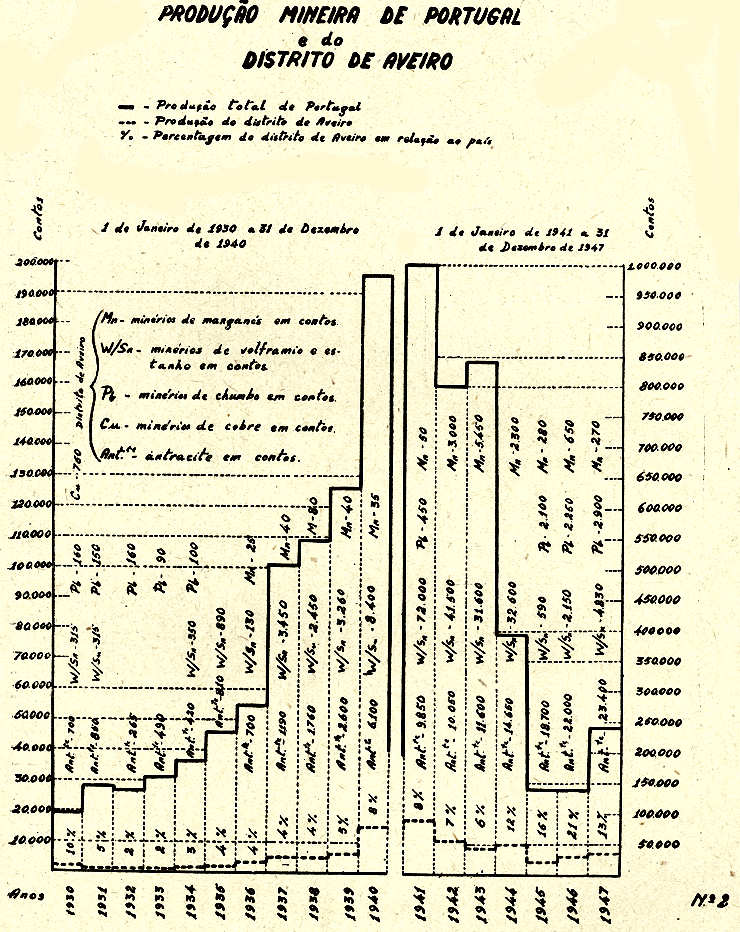 PRODUÇÃO MINEIRA DE PORTUGAL
e do
DISTRITO DE AVEIRO
— - Produção total de Portugal
--- - Produção do distrito de Aveiro
% - Percentagem do distrito de Aveiro em relação ao país
Contos
1 de Janeiro de 1930 a 31 de Dezembro
de 1940
1 de Janeiro de 1941 a 31
de Dezembro de 1947
Contos
200.000
190.000
180.000
170.000
160.000
150.000
140.000
130.000
120.000
110.000
100.000
90.000
80.000
70.000
60.000
50.000
40.000
30.000
20.000
10.000
Distrito de Aveiro
Mn - minérios de manganés em contos.
W/Sn - minérios de volframio e es-
tanho em contos
Pb - minérios de chumbo em contos.
Cu - minérios de cobre em contos.
Ant.te - antracite em contos.
1.000.000
950.000
900.000
850.000
800.000
750.000
700.000
650.000
600.000
550.000
500.000
450.000
400.000
350.000
300.000
250.000
200.000
150.000
100.000
50.000
Cu - 760
Pb - 160
W/Sn - 315
Ant.te - 700
10%
Pb - 150
W/Sn - 315
Ant.te
5%
Pb - 160
Ant.te - 265
2%
Pb - 90
Ant.te - 490
2%
Pb - 100
W/Sn - 350
Ant.te - 420
3%
W/Sn - 890
Ant.te
4%
Mn - 25
W/Sn - 130
Ant.te - 700
4%
Mn - 40
W/Sn - 3.450
Ant.te 1190
4%
M - 80
W/Sn - 2.450
Ant.te 1.760
4%
Mn - 40
W/Sn - 3.260
Ant.te 2.600
5%
Mn - 35
W/Sn - 8.400
Ant.te 6.100
8%
Mn - 50
Pb - 450
W/Sn - 72.000
Ant.te 9.850
8%
Mn - 3.000
W/Sn - 41.500
Ant.te 10.050
7%
Mn - 5.450
W/Sn - 31.600
Ant.te 11.600
6%
Mn - 2.300
W/Sn - 32.600
Ant.te - 14.650
12%
Mn - 280
Pb - 2.100
W/Sn 590
Ant.te 18.700
16%
Mn - 650
Pb - 2.250
W/Sn - 2.150
Ant.te - 22.000
21%
Mn - 270
Pb - 2.900
W/Sn - 4.830
Ant.te 23.400
13%
Anos
1930 1931 1932 1933 1934 1935 1936 1937 1938 1939 1940 1941 1942 1943 1944 1945 1946 1947
N.º 2